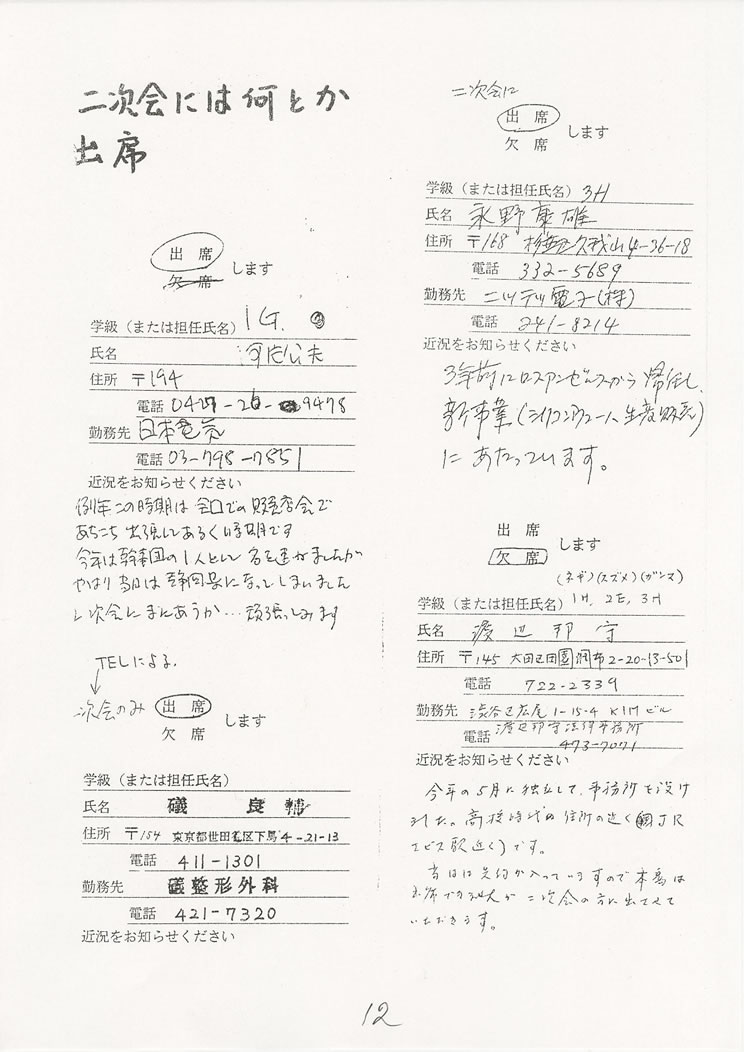 二次会には何とか
出席
出 席
欠 席
します
学級（または担任氏名） 1G.
氏名
住所 〒194
電話
勤務先 日本電気
電話 03-798-7851
近況をお知らせください
例年この時期は全国での販売店会で
あちこち出張してあるく時期です
今年は幹事団の1人として名を連ねましたが
やはり当日は静岡県になってしまいました
2次会にまにあうか…頑張ってみます
TELによる.
次会のみ
出 席
欠 席
します
学級（または担任氏名）
氏名 礒 良輔
住所 〒154 東京都世田谷区下馬4-21-13
電話 411-1301
勤務先 礒整形外科
電話 421-7320
近況をお知らせください
二次会に
出 席
欠 席
します
学級（または担任氏名） 3H
氏名 永野康雄
住所 〒168 杉並区久我山4-36-18
電話 332-5689
勤務先 ニッテツ電子(株)
電話 241-8214
近況をお知らせください
3年前にロスアンゼルスから帰任し、
新事業(シリコンウェーハ、生産販売)
にあたっています。
出 席
欠 席
します
(ネギ)(スズメ)(ガンマ)
学級（または担任氏名） 1H. 2E, 3H
氏名 渡辺邦守
住所 〒145 大田区田園調布2-20-13-501
電話 722-2339
勤務先 渋谷区広尾1-15-4 KIMビル
渡辺邦守法律事務所
電話 473-7071
近況をお知らせください
今年の5月に独立して、事務所を設け
ました。高校時代の住所の近く(JR
エビス駅近く)です。
当日は先約が入っていますので本番は
出席できませんが二次会の方に出させて
いただきます。
12